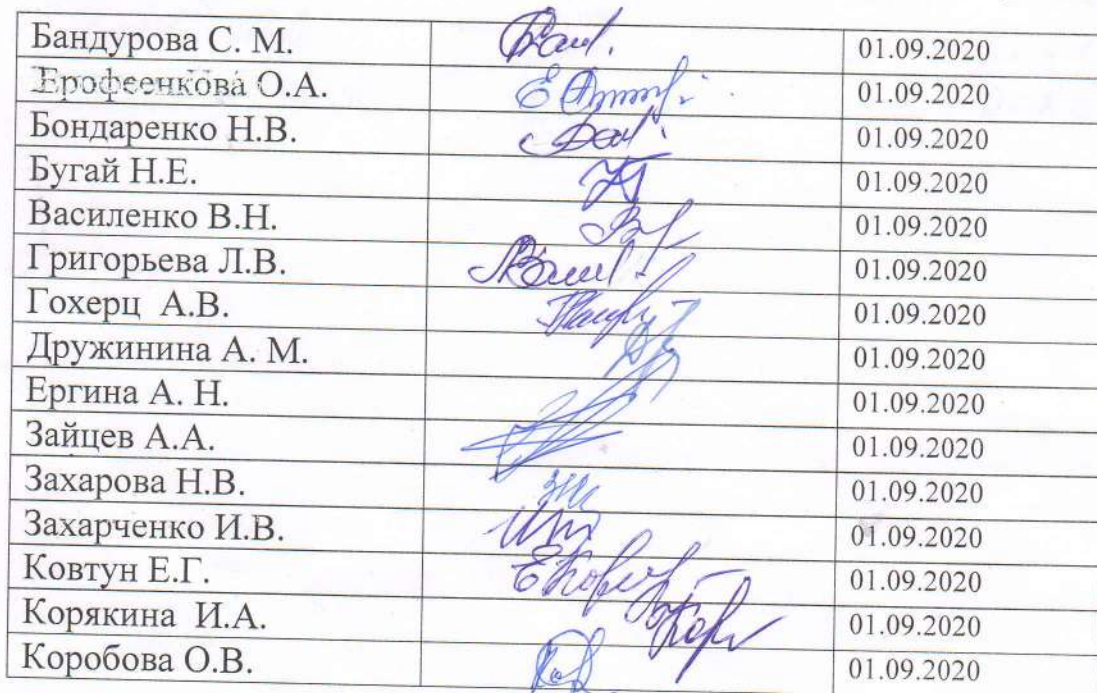 Бандурова С. М. 01.09.2020
Ерофеенкова О.А. 01.09.2020
Бондаренко Н.В. 01.09.2020
Бугай Н.Е. 01.09.2020
Василенко В.Н. 01.09.2020
Григорьева Л.В. 01.09.2020
Гохерц А.В. 01.09.2020
Дружинина А. М. 01.09.2020
Ергина А. Н. 01.09.2020
Зайцев А.А. 01.09.2020
Захарова Н.В. 01.09.2020
Захарченко И.В. 01.09.2020
Ковтун Е.Г. 01.09.2020
Корякина И.А. 01.09.2020
Коробова О.В. 01.09.2020